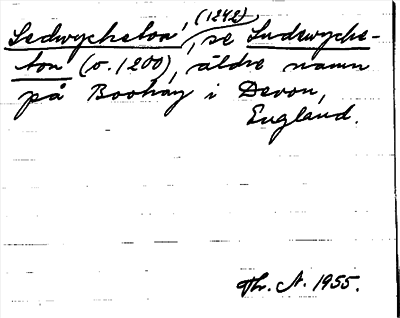 Ledwyckelon, (1242), se Ludewyche-
ton (o. 1200), äldre namn
på Boohay i Devon,
England.
Th. A. 1955.